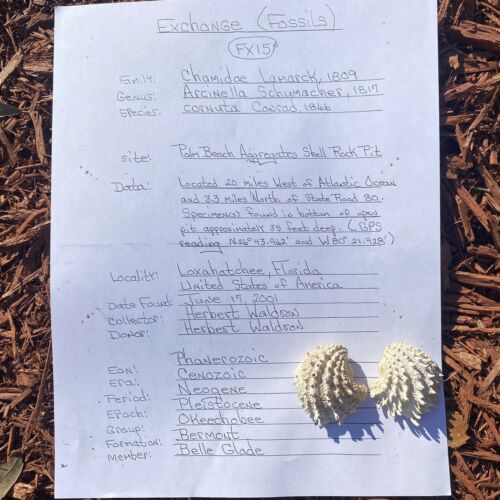 Exchange (Fossils)
FX15
Family: Chamidae Lamarck, 1809
Genus: Arcinella Schumacher, 1817
Species: cornuta Conrad, 1866
Site: Palm Beach Aggregates Shell Rock Pit
Data: Located 20 miles West of Atlantic Ocean
and 3.3 miles North of State Road 80.
Specimen(s) found in bottom of open
pit approximately 35 feet deep. (GPS
reading N26° 43.962' and W80° 21.928')
Locality: Loxahatchee, Florida
United States of America
Date Found: June 17, 2001
Collector: Herbert Waldron
Donor: Herbert Waldron
Eon: Phanerozoic
Era: Cenozoic
Period: Neogene
Epoch: Pleistocene
Group: Okeechobee
Formation: Bermont
Member: Belle Glade